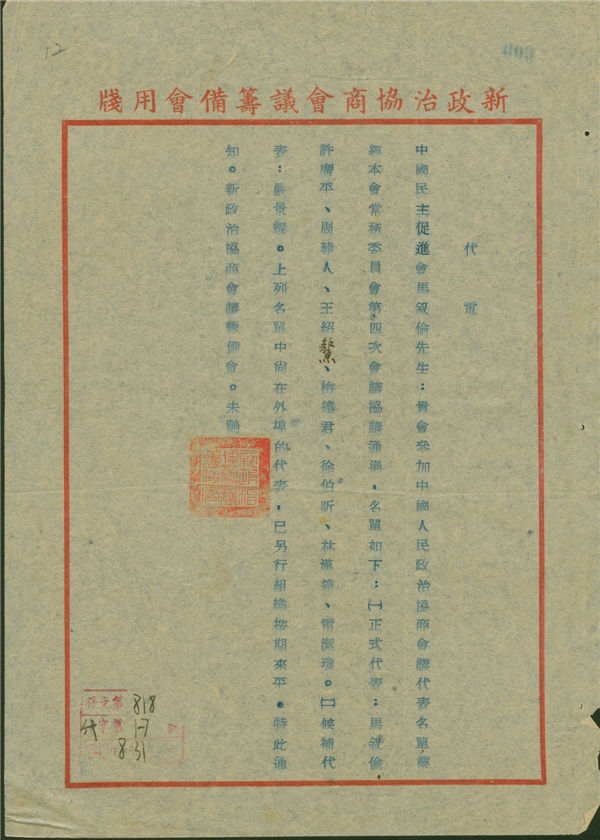 12
603
新政治協商會議籌備會用牋
代電
中國民主促進會馬叙倫先生:貴會參加中國人民政治協商會議代表名單業
經本會常務委員會第四次會議協議通過,名單如下:㈠正式代表:馬叙倫
許廣平、周建人、王紹鏊、梅達君、徐伯昕、林漢達、雷潔瓊。㈡候補代
表:嚴景耀。上列名單中尚在外埠的代表,已另行組織按期來平。特此通
知。新政治協商會議籌備會。未艷
文第 818
代字第 17
8 31